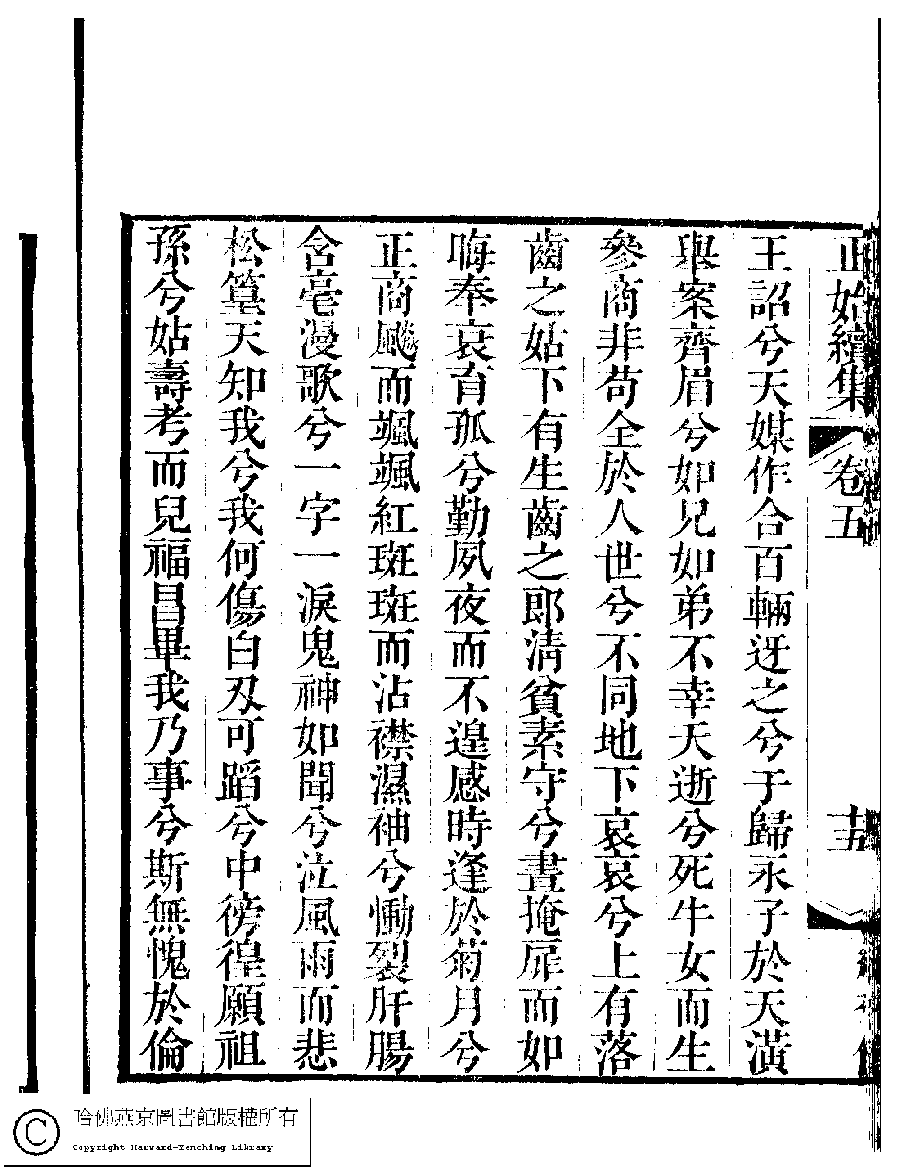 正始續集 卷五 十五
王詔兮天媒作合百輛迓之兮于歸永予於天潢
舉案齊眉兮如兄如弟不幸天逝兮死牛女而生
參商非苟全於人世兮不同地下哀哀兮上有落
齒之姑下有生齒之郎清貧素守兮晝掩扉而如
晦奉哀育孤兮勤夙夜而不遑感時逢於菊月兮
正商飈而颯颯紅斑斑而沾襟濕袖兮慟裂肝腸
含毫漫歌兮一字一淚鬼神如聞兮泣風雨而悲
松篁天知我兮我何傷白刄可蹈兮中徬徨願祖
孫兮姑壽考而兒福昌畢我乃事兮斯無愧於倫
哈佛燕京圖書館版權所有
Copyright Harvard-Yenching Library